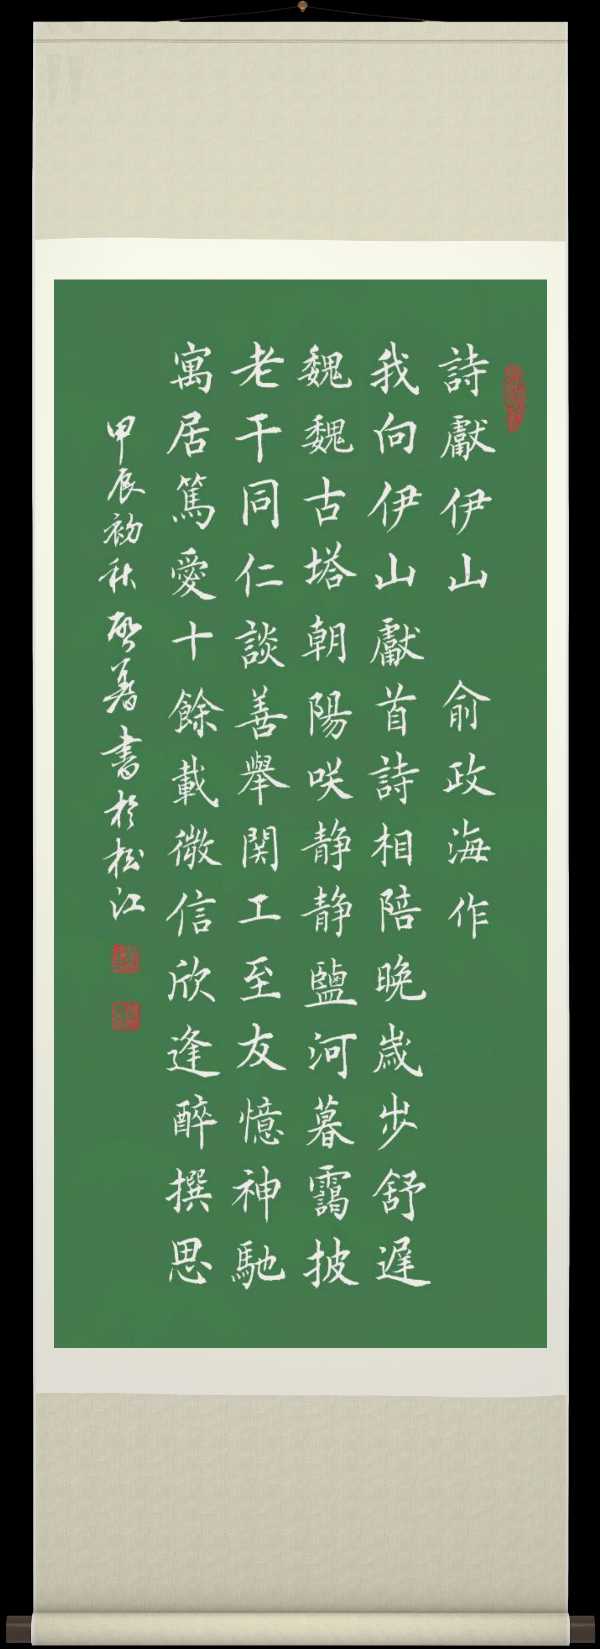 詩獻伊山 俞政海作
我向伊山獻首詩相陪晚歲步舒遲
魏魏古塔朝陽咲静静鹽河暮靄披
老干同仁談善舉関工至友憶神馳
寓居篤愛十餘載微信欣逢醉撰思
甲辰初秋 書於松江